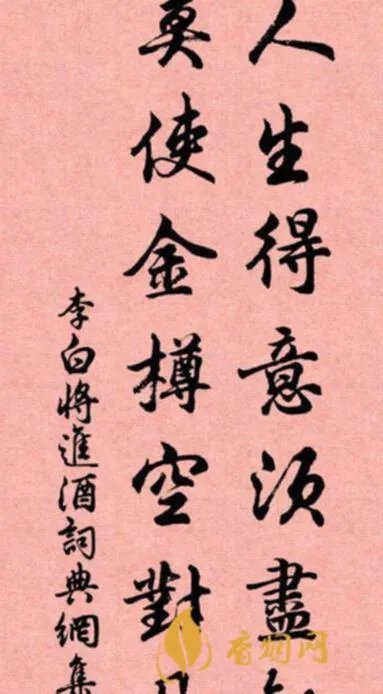 人生得意須盡
莫使金樽空對
李白將進酒詞典網集
香烟网